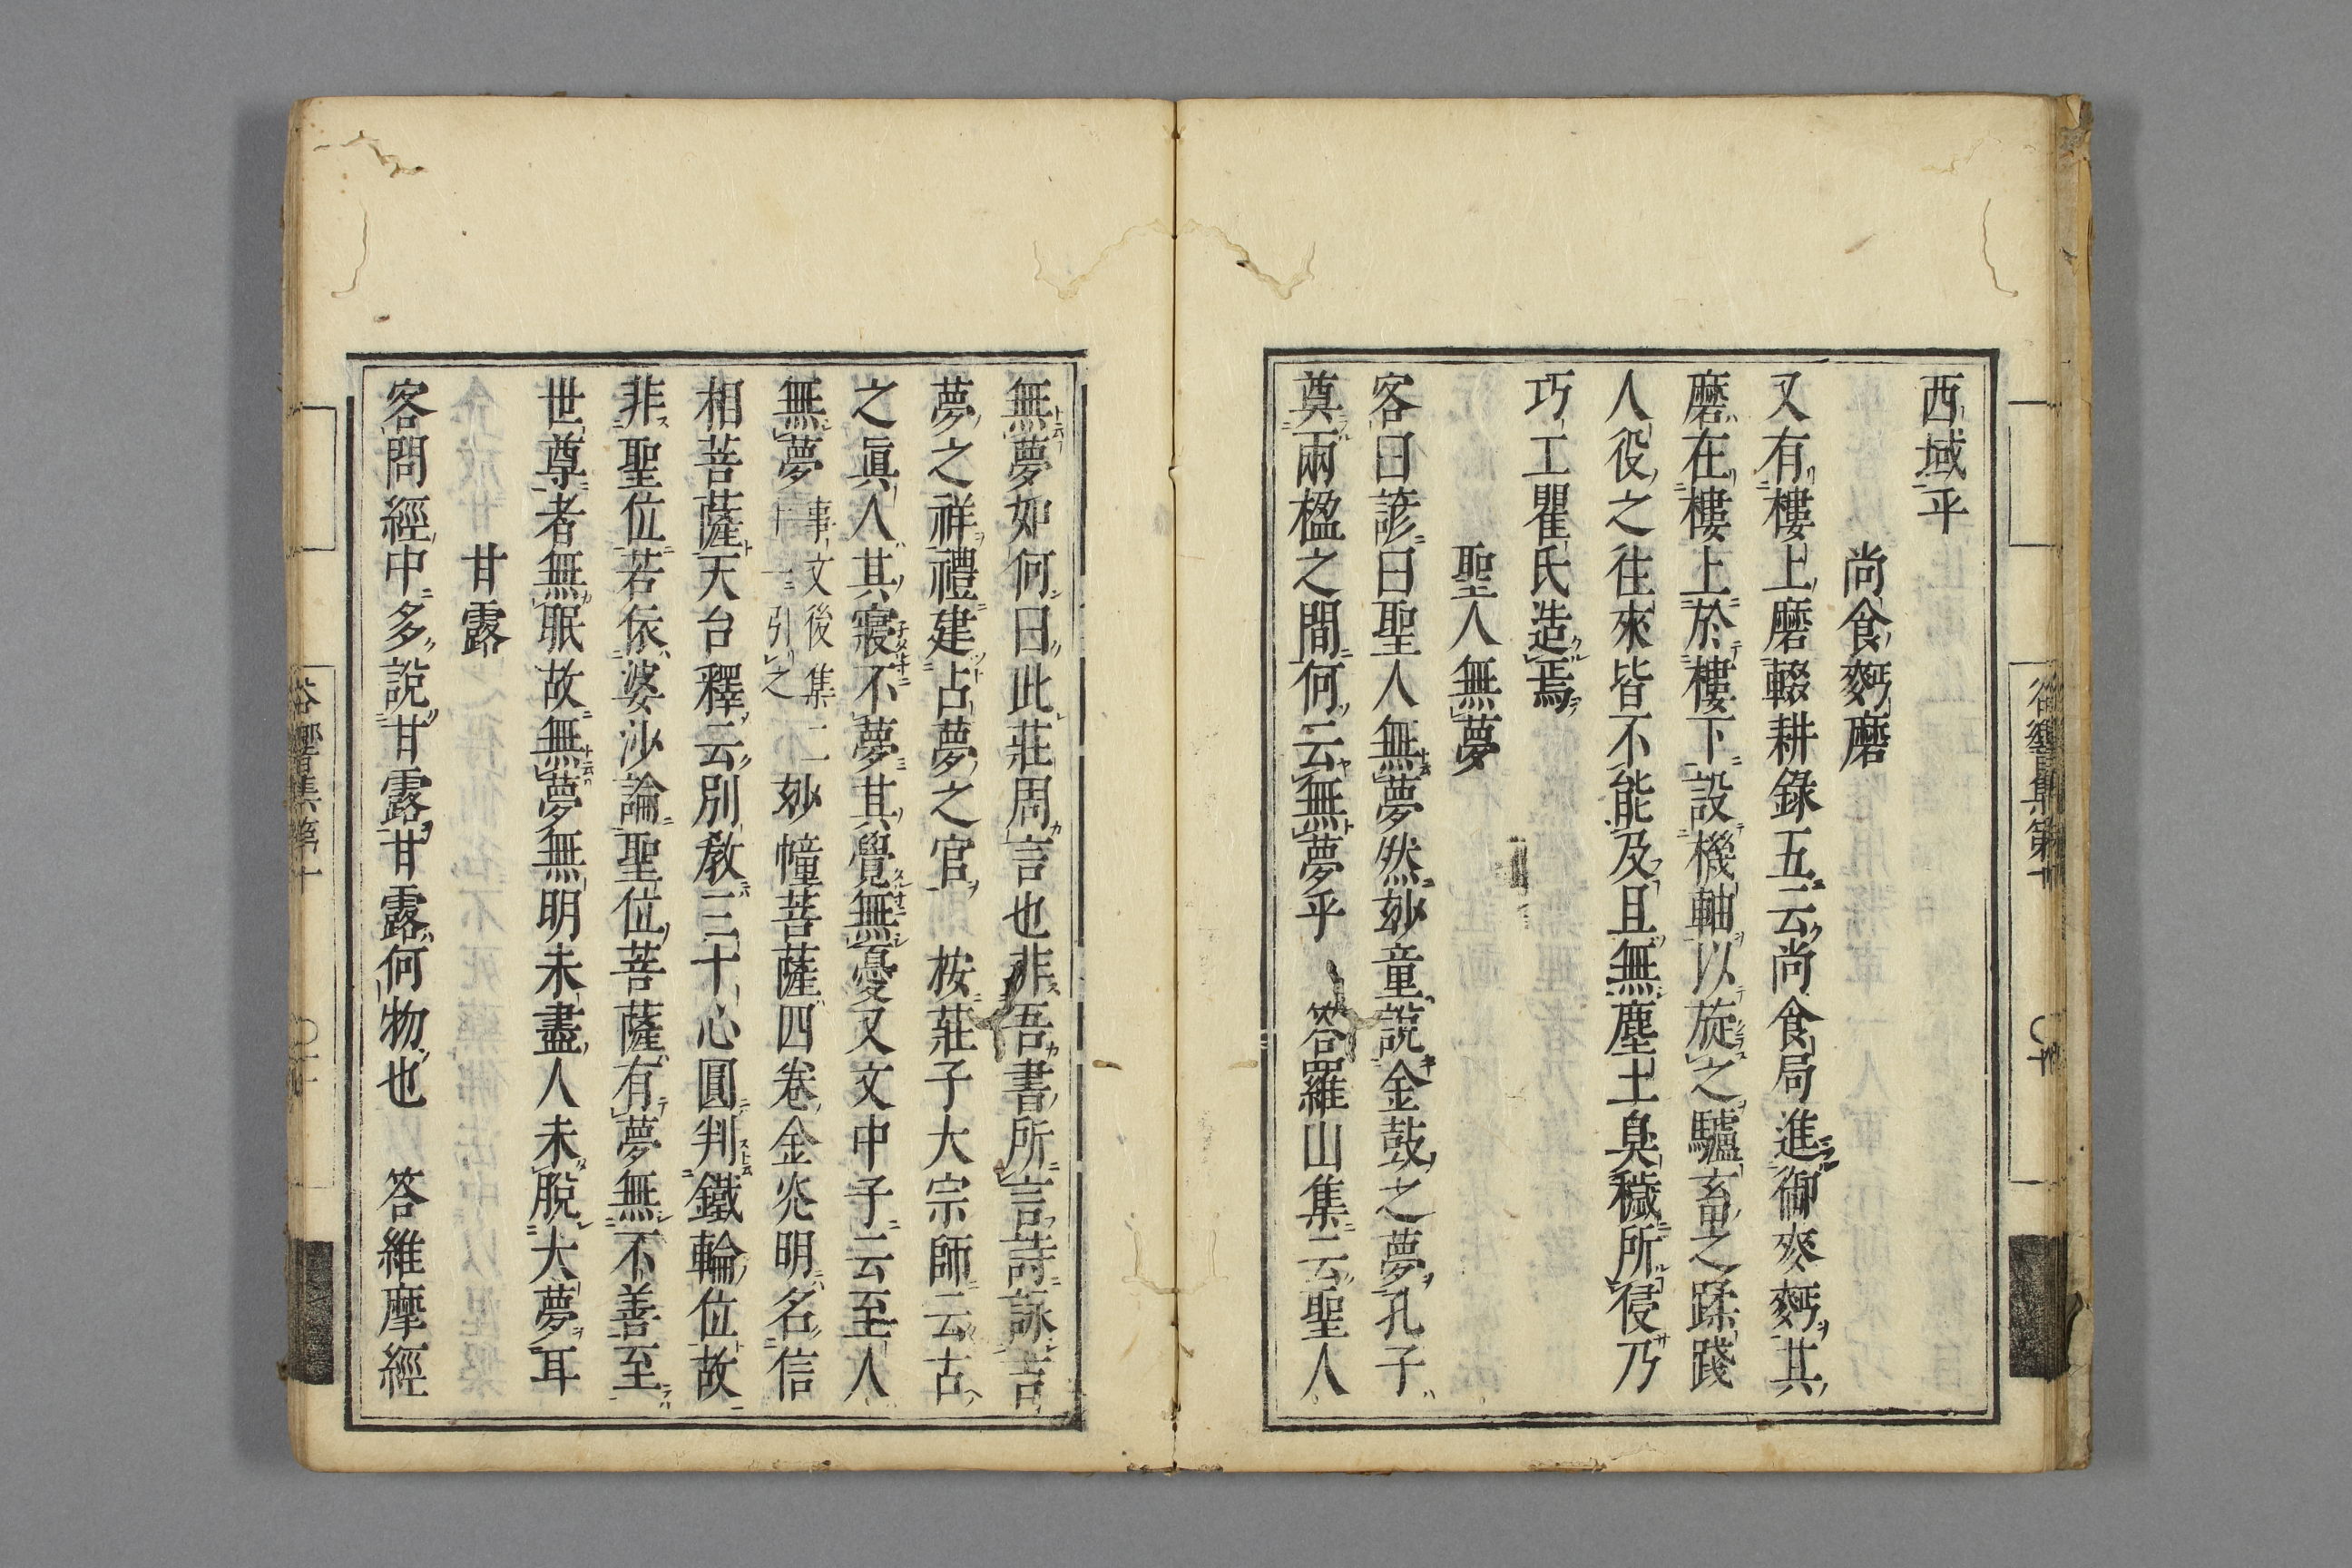 西域乎
尚食麪磨
又有樓上磨輟耕錄五云尚食局進御麥麪其
磨在樓上於樓下設機軸以旋之驢畜之蹂踐
人役之往來皆不能及且無塵土臭穢所侵乃
巧工瞿氏造焉
聖人無夢
客曰諺曰聖人無夢然玅童說金鼓之夢孔子
奠兩楹之間何云無夢乎　答羅山集云聖人
無夢如何曰此莊周言也非吾書所言詩詠吉
夢之祥禮建占夢之官　按莊子大宗師云古
之眞人其寢不夢其覺無憂又文中子云至人
無夢事文後集二十一引之玅幢菩薩四卷金光明名信
相菩薩天台釋云別敎三十心圓判鐵輪位故
非聖位若依婆沙論聖位菩薩有夢無不善至
世尊者無眠故無夢無明未盡人未脫大夢耳
甘露
客問經中多說甘露甘露何物也　答維摩經
谷響集第十
谷響集第十